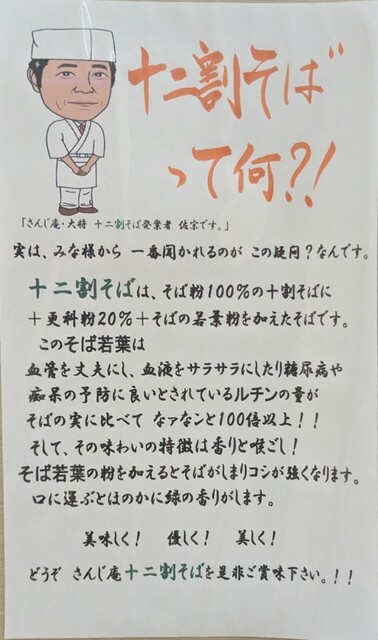 十二割そば
って何?!
「さんじ庵・大将 十二割そば発案者 佐宗です。」
実は、みな様から 一番聞かれるのが この疑問?なんです。
十二割そばは、そば粉100%の十割そばに
+更科粉20%+そばの若葉粉を加えたそばです。
このそば若葉は
血管を丈夫にし、血液をサラサラにしたり糖尿病や
痴呆の予防に良いとされているルチンの量が
そばの実に比べて なァなんと100倍以上!!
そして、その味わいの特徴は香りと喉ごし!
そば若葉の粉を加えるとそばがしまりコシが強くなります。
口に運ぶとほのかに緑の香りがします。
美味しく! 優しく! 美しく!
どうぞ さんじ庵十二割そばを是非ご賞味下さい。!!